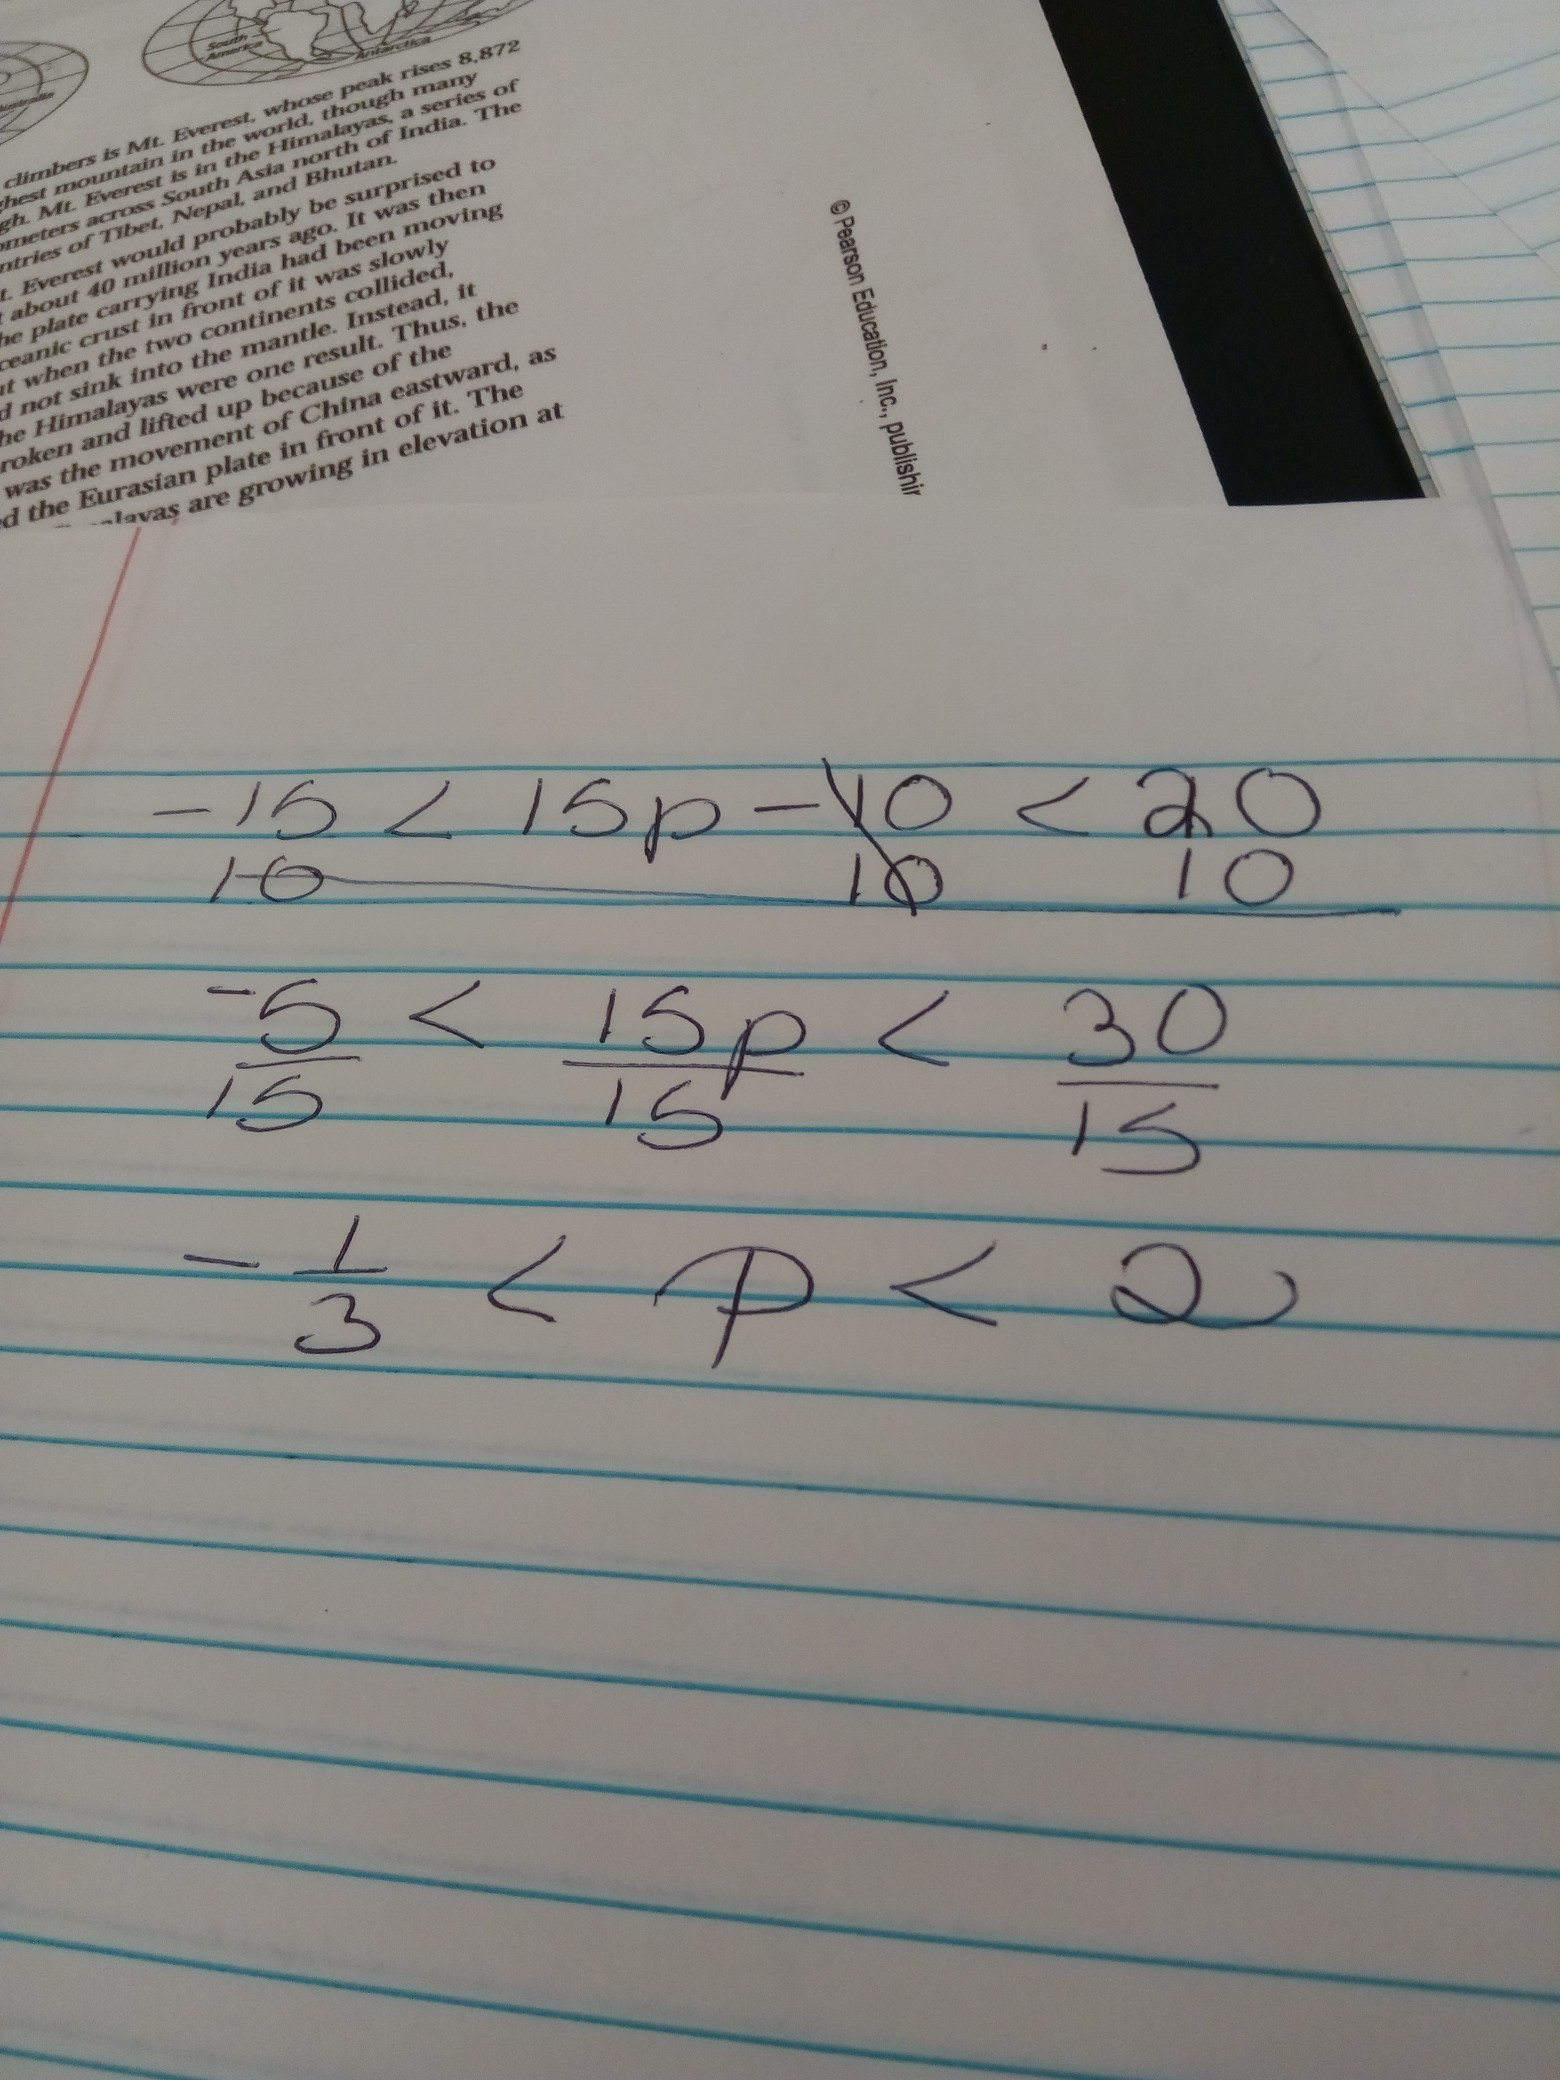 South
America
Antarctica
Australia
climbers is Mt. Everest, whose peak rises 8,872
ghest mountain in the world, though many
gh. Mt. Everest is in the Himalayas, a series of
ometers across South Asia north of India. The
ntries of Tibet, Nepal, and Bhutan.
t. Everest would probably be surprised to
t about 40 million years ago. It was then
he plate carrying India had been moving
ceanic crust in front of it was slowly
ut when the two continents collided,
d not sink into the mantle. Instead, it
he Himalayas were one result. Thus, the
roken and lifted up because of the
was the movement of China eastward, as
ed the Eurasian plate in front of it. The
alayas are growing in elevation at
© Pearson Education, Inc., publishin
-15 < 15p - 10 < 20
10 10 10
-5 < 15p < 30
15 15 15
- 1 < p < 2
3